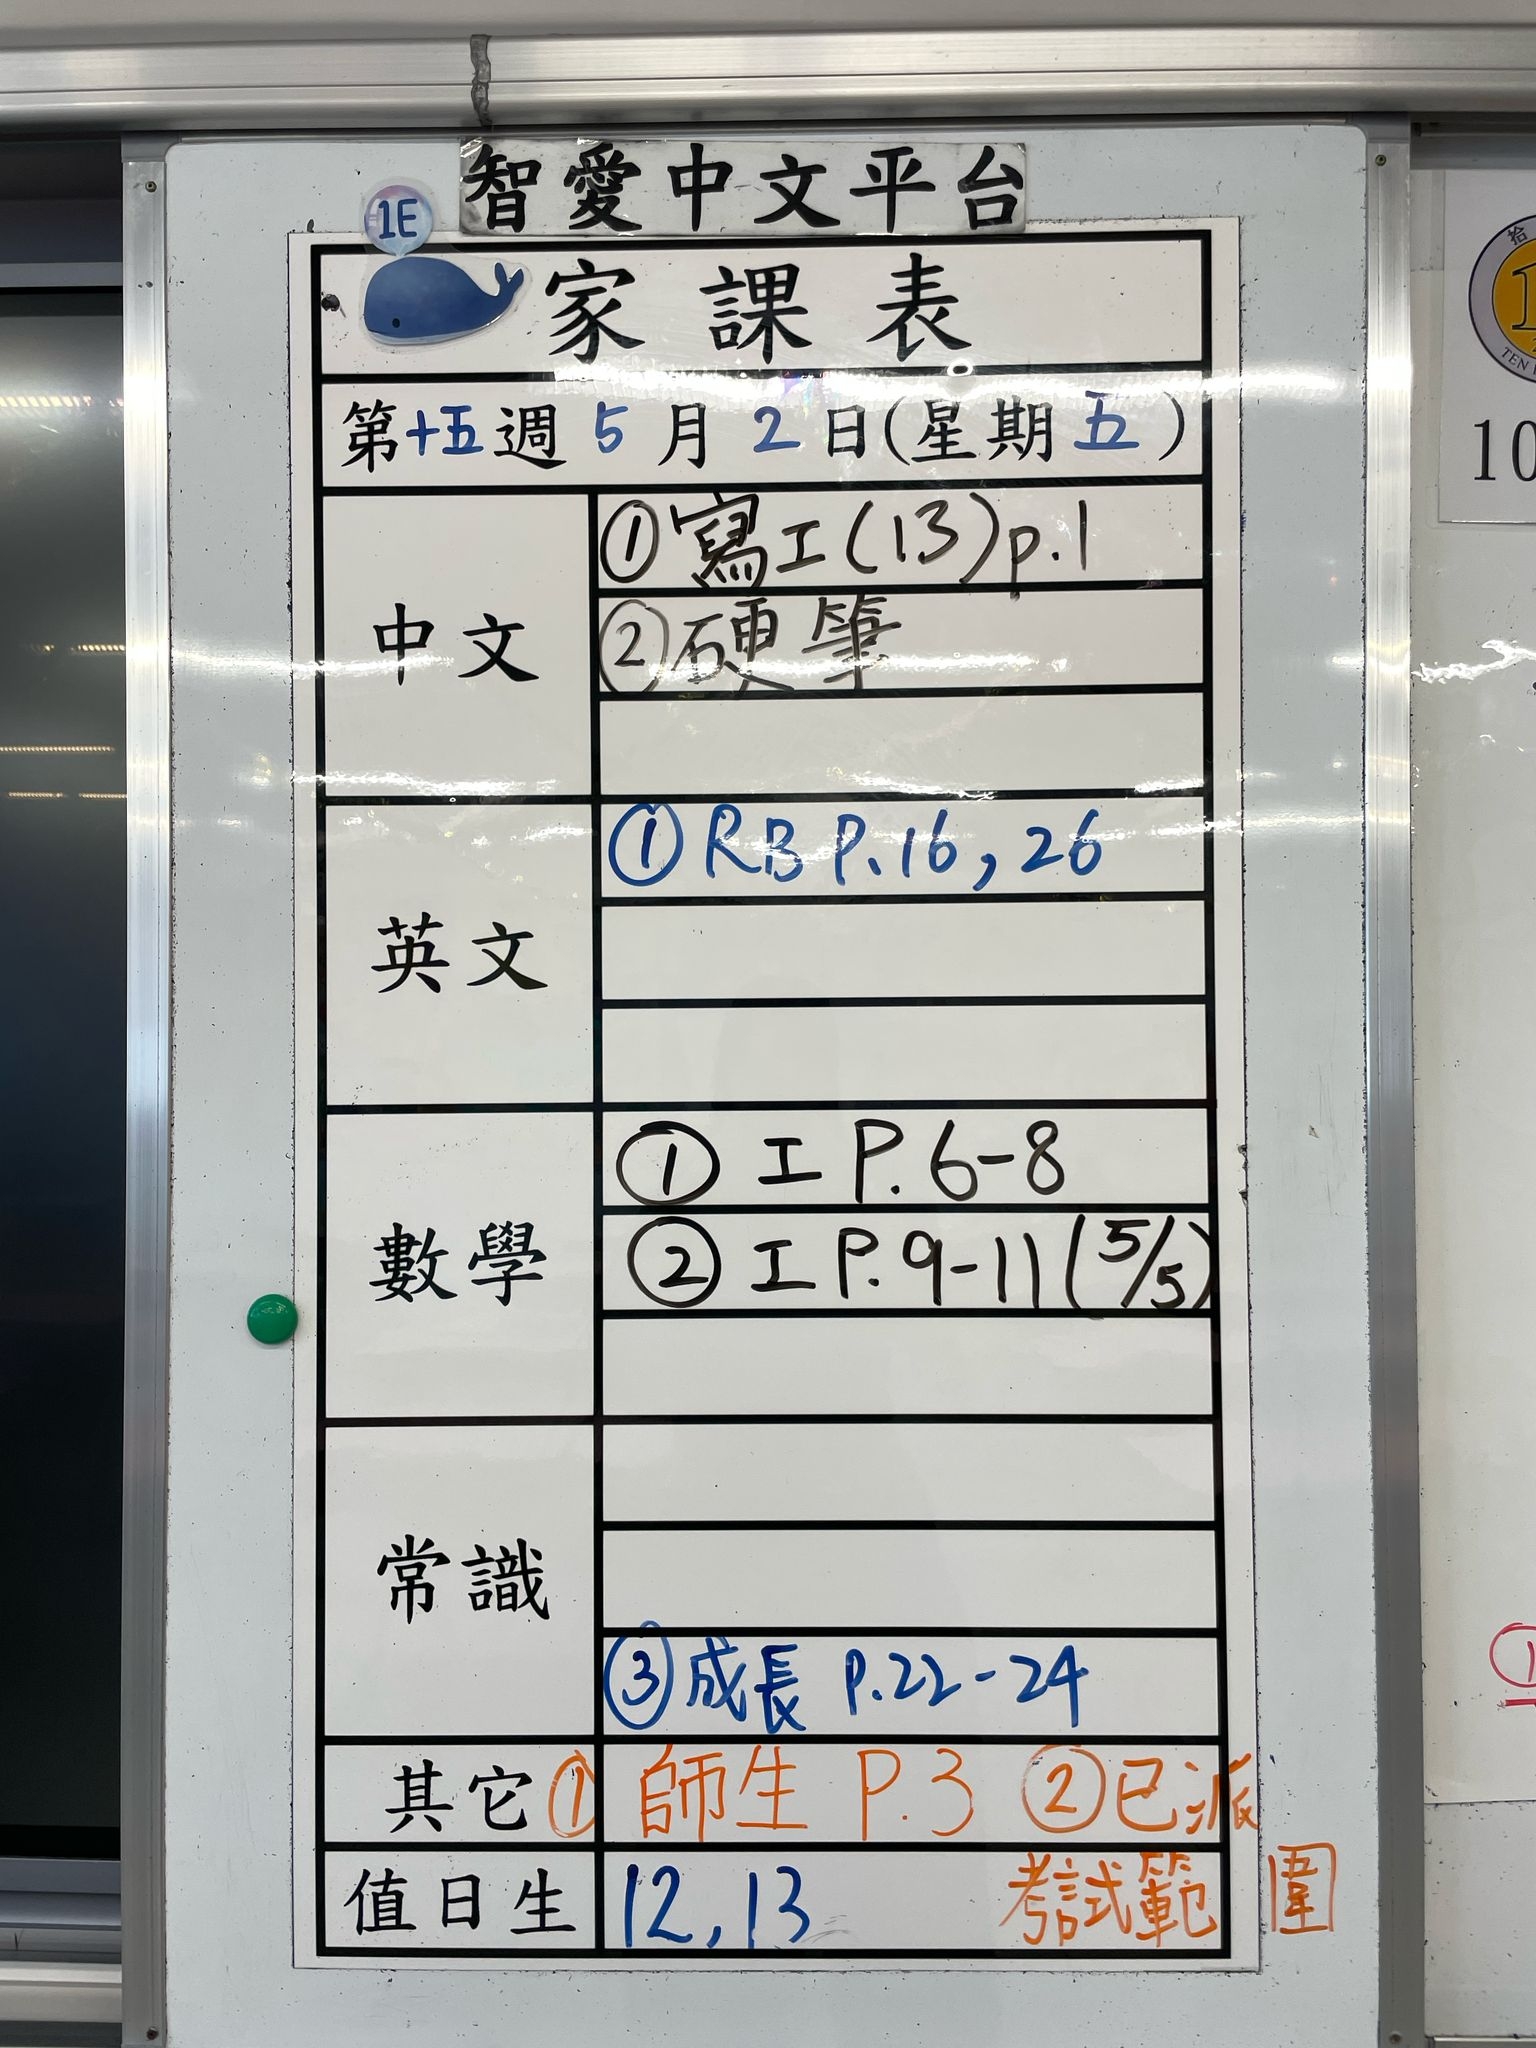 智愛中文平台
1E
家課表
第十五週 5月2日(星期五)
中文
①寫工(13)p.1
②硬筆
英文
①RB P.16,26
數學
①工P.6-8
②工P.9-11(5/5)
常識
③成長 P.22-24
其它 ①師生 P.3 ②已派
考試範圍
值日生 12,13
拾
TEN
10
①